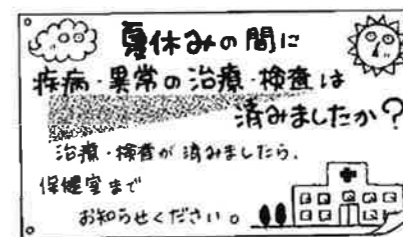 夏休みの間に
疾病・異常の治療・検査は
済みましたか?
治療・検査が済みましたら、
保健室まで
お知らせください。